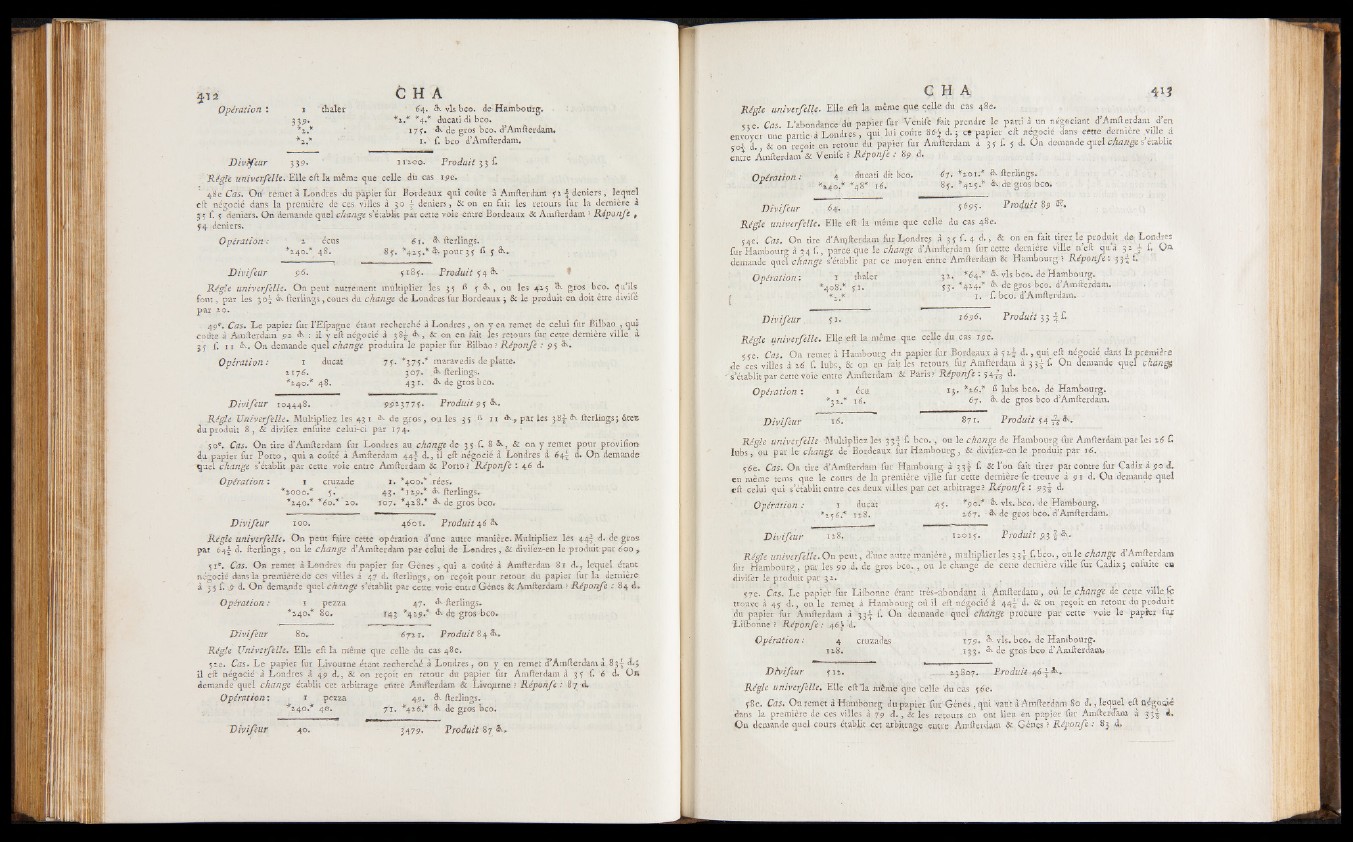 412
C H A
Opération : 1 thaler 64. ₰ vls bco. de Hambourg.
339. *2.* *4.* ducati di bco.
*2.* 175. ₰ de gros bco. d'Amſterdam.
*2.* 1. ſ. bco d'Amſterdam.
Diviſeur 339. 11200. Produit 33 ſ.
Régle univerſelle. Elle eſt la même que celle du cas 19e.
48e Cas. On remet à Londres du papier ſur Bordeaux qui coûte à Amſterdam 52 ¾ deniers, lequel
eſt négocié dans la première de ces villes à 30 ½ deniers, & on en fait les retours ſur la dernière à
35 ſ. 5 deniers. On demande quel change s'établit par cette voie entre Bordeaux & Amſterdam ? Réponſe ,
54 deniers.
Opération : 2 écus 61. ₰ ſterlings.
*240.* 48. 85. *425.* ₰ pour 35 ß 5 ₰.
Diviſeur 96. 5185. Produit 54 ₰.
Régle univerſelle. On peut autrement multiplier les 35 ß 5 ₰, ou les 425 ₰ gros bco. qu'ils
font, par les 30½ ₰ ſterlings, cours du change de Londres ſur Bordeaux ; & le produit en doit être diviſé
par 20.
49e. Cas. Le papier ſur l'Eſpagne étant recherché à Londres, on y en remet de celui ſur Bilbao, qui
coûte à Amſterdam 92 ₰ : il y eſt négocié à 38⅜ ₰, & on en fait les retours ſur cette dernière ville à
35 ſ. 11 ₰. On demande quel change produira le papier ſur Bilbao ? Réponſe : 95 ₰.
Opération : 1 ducat 75. *375.* maravedis de platte.
2176. 307. ₰ ſterlings.
*240.* 48. 431. ₰ de gros bco.
Diviſeur 104448. 9923775. Produit 95 ₰.
Régle Univerſelle. Multipliez les 431 ₰ de gros, ou les 35 ß 11 ₰, par les 38⅜ ₰ ſterlings ; ôtez
du produit 8, & diviſez enſuite celui-ci par 174.
50e. Cas. On tire d'Amſterdam ſur Londres au change de 35 ſ. 8 ₰, & on y remet pour proviſion
du papier ſur Porto, qui a coûté à Amſterdam 44¾ d., il eſt négocié à Londres à 64½ d. On demande
quel change s'établit par cette voie entre Amſterdam & Porto ? Réponſe : 46 d.
Opération : 1 cruzade 1. *400.* rées.
*2000.* 5. 43. *129.* ₰ ſterlings.
*240.* *60.* 20. 107. *428.* ₰ de gros bco.
Diviſeur 100. 4601. Produit 46 ₰
Régle univerſelle. On peut faire cette opération d'une autre manière. Multipliez les 44¾ d. de gros
par 64½ d. ſterlings, ou le change d'Amſterdam par celui de Londres, & diviſez-en le produit par 600,
51e. Cas. On remet à Londres du papier ſur Gènes, qui a coûté à Amſterdam 82 d., lequel étant
négocié dans la première de ces villes à 47 d. ſterlings, on reçoit pour retour du papier ſur la dernière
à 35 ſ. 9 d. On demande quel change s'établit par cette voie entre Gènes & Amſterdam ? Réponſe : 84 d.
Opération : 1 pezza 47. ₰ ſterlings.
*240.* 80. 143 *429.* ₰ de gros bco.
Diviſeur 80. 6721. Produit 84 ₰.
Régle Univerſelle. Elle eſt la même que celle du cas 48e.
52e. Cas. Le papier ſur Livourne étant recherché à Londres, on y en remet d'Amſterdam à 83½ d.;
il eſt négocié à Londres à 49 d., & on reçoit en retour du papier ſur Amſterdam à 35 ſ. 6 d. On
demande quel change établit cet arbitrage entre Amſterdam & Livourne ? Réponſe : 87 d.
Opération : 1 pezza 49. ₰ ſterlings.
*240.* 40. 71. *426.* ₰ de gros bco.
Diviſeur 40. 3479. Produit 87 ₰.
C H A
413
Régle univerſelle. Elle eſt la même que celle du cas 48e.
53e. Cas. L'abondance du papier ſur Veniſe fait prendre le parti à un négociant d'Amſterdam d'en
envoyer une partie à Londres, qui lui coûte 86½ d. ; ce papier eſt négocié dans cette dernière ville à
50¼ d., & on reçoit en retour du papier ſur Amſterdam à 35 ſ. 5 d. On demande quel change s'établit
entre Amſterdam & Veniſe ? Réponſe : 89 d.
Opération : 4 ducati di bco. 67. *201.* ₰ ſterlings.
*240.* *48* 16. 85. *425.* ₰ de gros bco.
Diviſeur 64. 5695. Produit 89 ₰.
Régle univerſelle. Elle eſt la même que celle du cas 48e.
54e. Cas. On tire d'Amſterdam ſur Londres à 35 ſ. 4 d., & on en fait tirer le produit de Londres
ſur Hambourg à 34 ſ., parce que le change d'Amſterdam ſur cette dernière ville n'eſt qu'à 32 ½ ſ. On
demande quel change s'établit par ce moyen entre Amſterdam & Hambourg ? Réponſe : 33½ ſ.
Opération : 1 thaler 32. *64.* ₰ vls bco. de Hambourg.
*408.* 52. 53. *424.* ₰ de gros bco. d'Amſterdam.
*2.* 1. ſ. bco. d'Amſterdam.
Diviſeur 52. 1696. Produit 33 ½ ſ.
Régle univerſelle. Elle eſt la même que celle du cas 19e.
55e. Cas. On remet à Hambourg du papier ſur Bordeaux à 52½ d., qui eſt négocié dans la première
de ces villes à 26 ſ. lubs, & on en fait les retours ſur Amſterdam à 33½ ſ. On demande quel change
s'établit par cette voie entre Amſterdam & Paris ? Réponſe : 54 7/16 d.
Opération : 1 écu 13. *26.* ß lubs bco. de Hambourg.
*32.* 16. 67. ₰ de gros bco d'Amſterdam.
Diviſeur 16. 871. Produit 54 7/16 ₰.
Régle univerſelle Multipliez les 33½ ſ. bco., ou le change de Hambourg ſur Amſterdam par les 26 ſ.
lubs, ou par le change de Bordeaux ſur Hambourg, & diviſez-en le produit par 16.
56e. Cas. On tire d'Amſterdam ſur Hambourg à 33⅜ ſ. & l'on fait tirer par contre ſur Cadix à 90 d.
en même tems que le cours de la première ville ſur cette dernière ſe trouve à 92 d. On demande quel
eſt celui qui s'établit entre ces deux villes par cet arbitrage ? Réponſe : 93⅞ d.
Opération : 1 ducat 45. *90.* ₰ vls. bco. de Hambourg.
*256.* 128. 267. ₰ de gros bco. d'Amſterdam.
Diviſeur 128. 12015. Produit 93 ⅞ ₰.
Régle univerſelle. On peut, d'une autre manière, multiplier les 33⅜ ſ. bco., ou le change d'Amſterdam
ſur Hambourg, par les 90 d. de gros bco., ou le change de cette dernière ville ſur Cadix ; enſuite en
diviſer le produit par 32.
57e. Cas. Le papier ſur Liſbonne étant très-abondant à Amſterdam, où le change de cette ville ſe
trouve à 45 d., on le remet à Hambourg où il eſt négocié à 44¾ d. & on reçoit en retour du produit
du papier ſur Amſterdam à 33¼ ſ. On demande quel change procure par cette voie le papier ſur
Liſbonne ? Réponſe : 46½ d.
Opération : 4 cruzades 179. ₰ vls. bco. de Hambourg.
128. 133. ₰ de gros bco d'Amſterdam.
Diviſeur 512. 23807. Produit 46 ½ ₰.
Régle univerſelle. Elle eſt la même que celle du cas 56e.
58e. Cas. On remet à Hambourg du papier ſur Gènes, qui vaut à Amſterdam 80 d., lequel eſt négocié
dans la première de ces villes à 79 d., & les retours en ont lieu en papier ſur Amſterdam à 33⅝ d.
On demande quel cours établit cet arbitrage entre Amſterdam & Gènes ? Réponſe : 83 d.